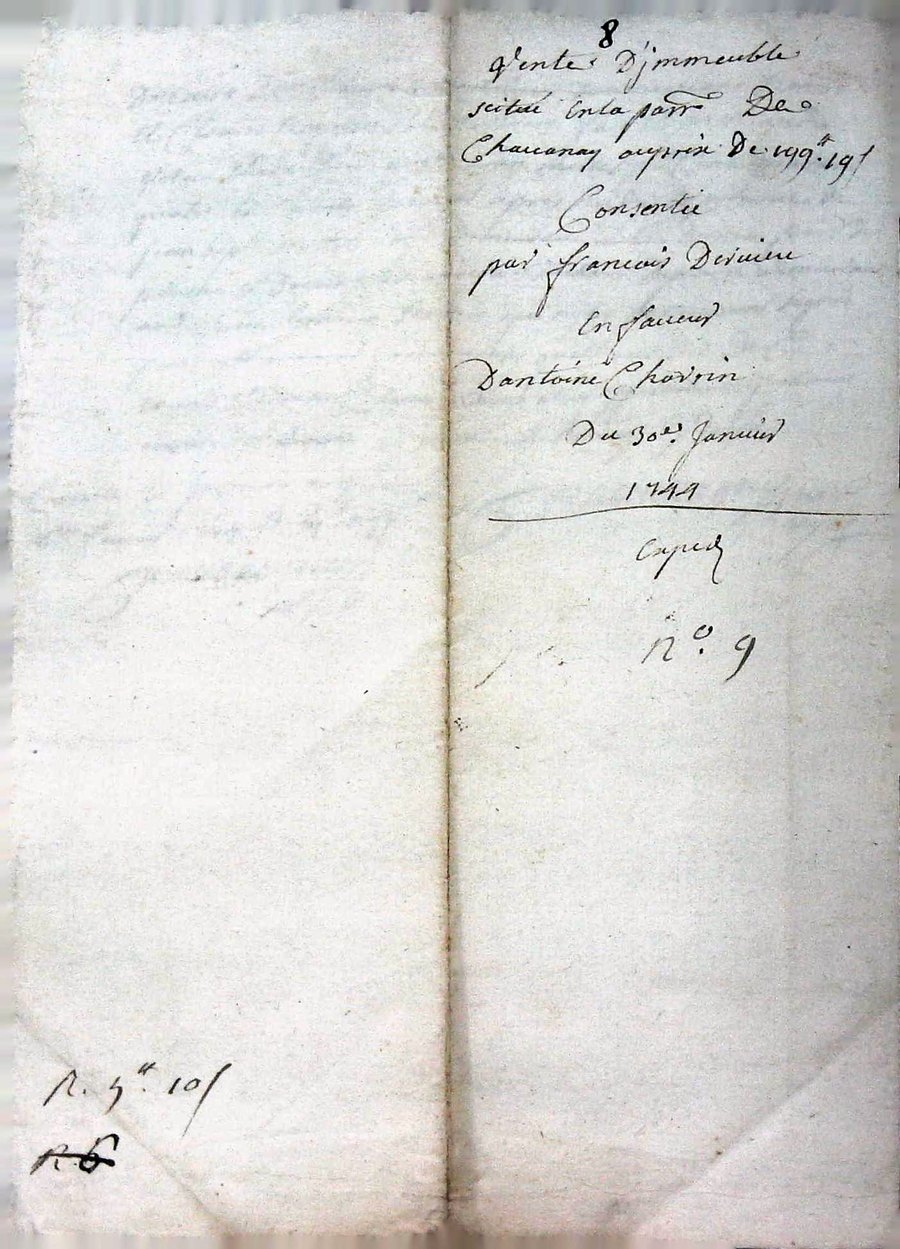 8
Vente D'jmmeuble
scitué En la parr^e De
Chavanay au prix De 199^lt 19^s
Consentie
par françois Dervieu
En faveur
D'antoine Chavrin
Du 30^e. Janvier
1744
Exped
N^o. 9
R. 5^lt. 10^s
R. 6